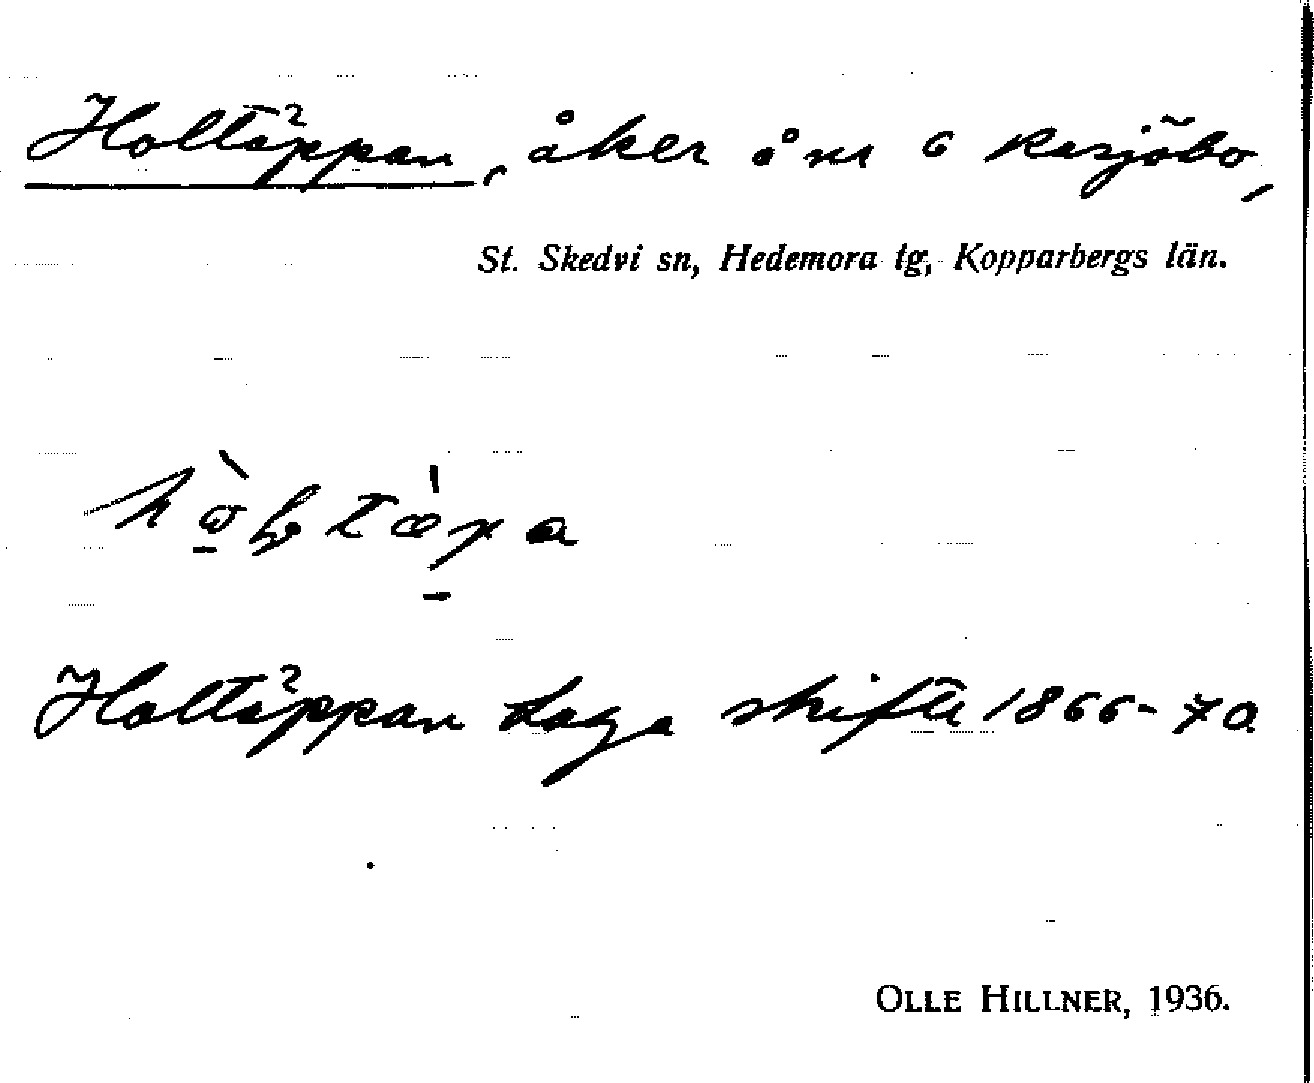 Holtäppan, åker å nr 6 Rasjöbo,
St. Skedvi sn, Hedemora tg, Kopparbergs län.
Holtäppan Laga skifte 1866-70
OLLE HILLNER, 1936.